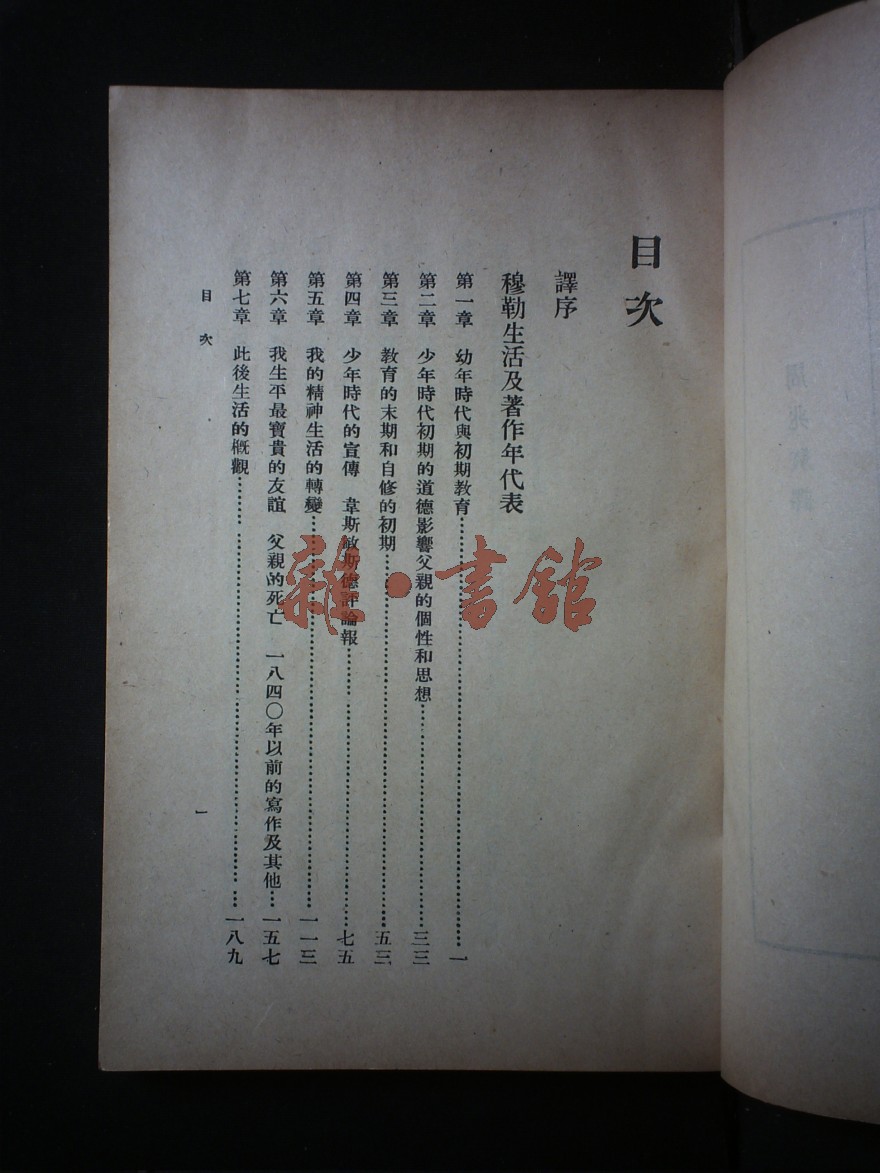 目次
譯序
穆勒生活及著作年代表
第一章　幼年時代與初期教育……一
第二章　少年時代初期的道德影響父親的個性和思想……三三
第三章　教育的末期和自修的初期……五三
第四章　少年時代的宣傳　韋斯敏斯德評論報……七五
第五章　我的精神生活的轉變……一一三
第六章　我生平最寶貴的友誼　父親的死亡　一八四〇年以前的寫作及其他……一五七
第七章　此後生活的概觀……一八九
目次　一
雜·書館